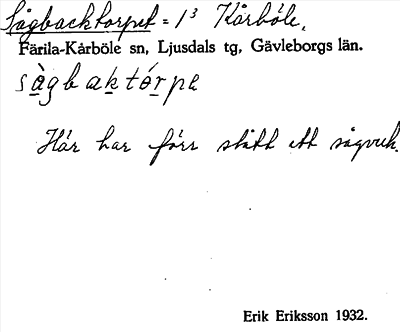 Sågbacktorpet = 1³ Kårböle.
Färila-Kårböle sn, Ljusdals tg, Gävleborgs län.
sàgbaktórpe
Här har förr stått ett sågverk.
Erik Eriksson 1932.